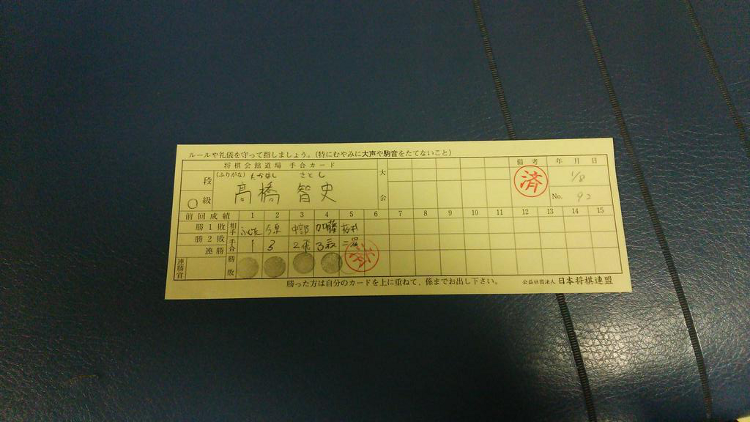 ルールや礼儀を守って指しましょう。(特にむやみに大声や駒音をたてないこと)
将棋会館道場 手合カード
備考 年 月 日
段 (ふりがな) さとし 大
○級 高橋 智史 会
済
No. 92
前回成績 1 2 3 4 5 6 7 8 9 10 11 12 13 14 15
勝1敗 相手 加藤
勝2敗 手合 1 3
連勝
連勝賞 勝敗 済
勝った方は自分のカードを上に重ねて、係までお出し下さい。 公益社団法人 日本将棋連盟